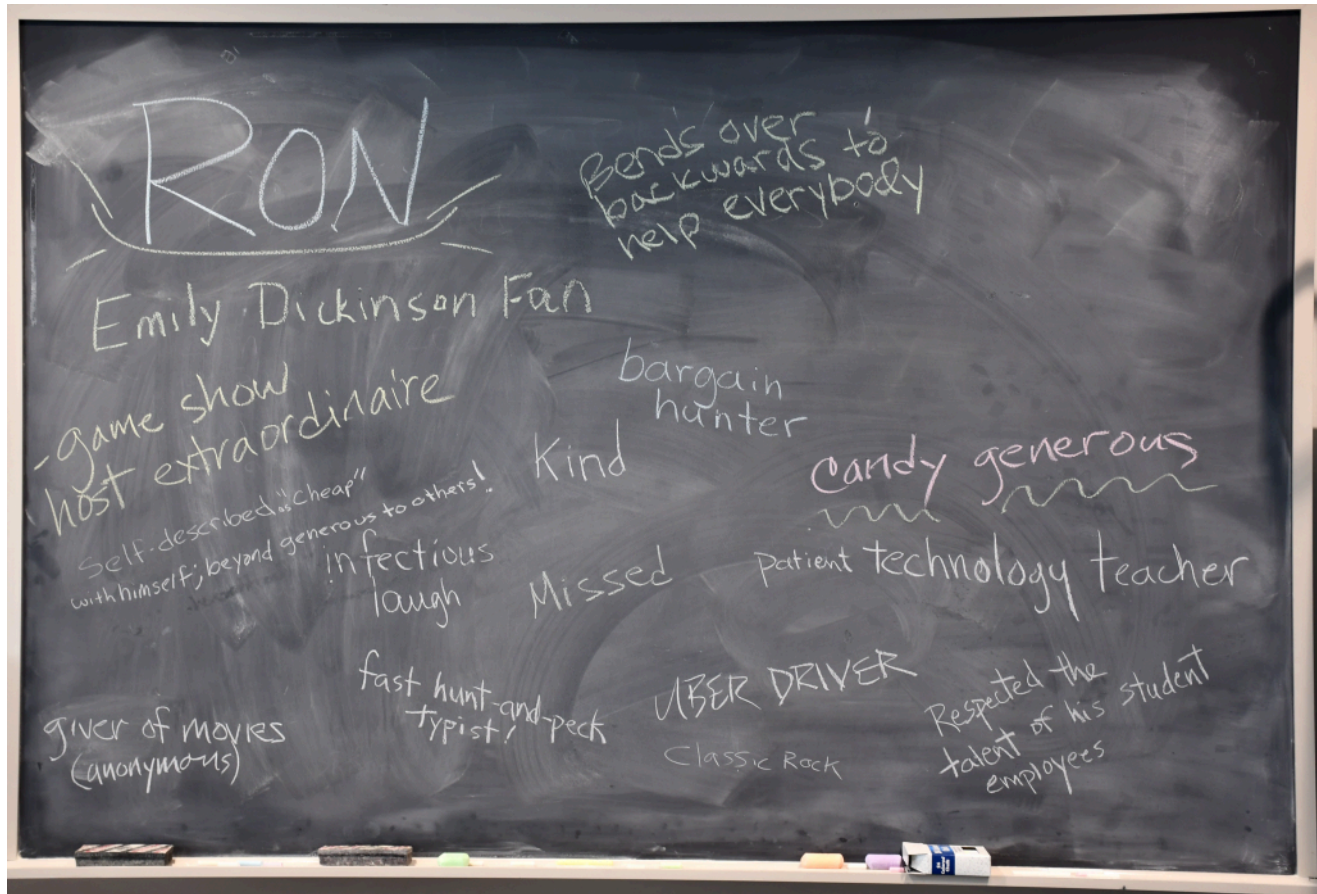 RON
Bends over
backwards to
help everybody
Emily Dickinson Fan
-game show
host extraordinaire
bargain
hunter
Kind
candy generous
Self-described "cheap"
with himself; beyond generous to others!
infectious
laugh
Missed
patient technology teacher
fast hunt-and-peck
typist!
UBER DRIVER
Classic Rock
Respected the
talent of his student
employees
giver of movies
(anonymous)